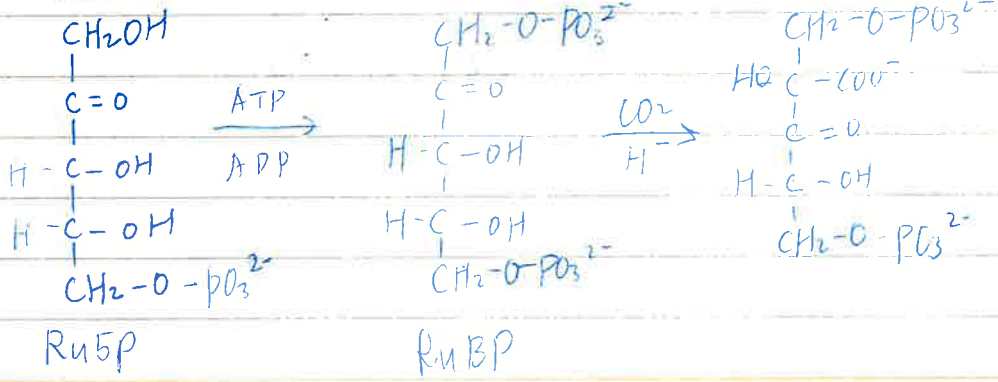 CH₂OH
|
C=O
|
H-C-OH
|
H-C-OH
|
CH₂-O-PO₃²⁻
Ru5P
ATP
→
ADP
CH₂-O-PO₃²⁻
|
C=O
|
H-C-OH
|
H-C-OH
|
CH₂-O-PO₃²⁻
RuBP
CO₂
→
H⁻
CH₂-O-PO₃²⁻
|
HO C-COO⁻
|
C=O
|
H-C-OH
|
CH₂-O-PO₃²⁻